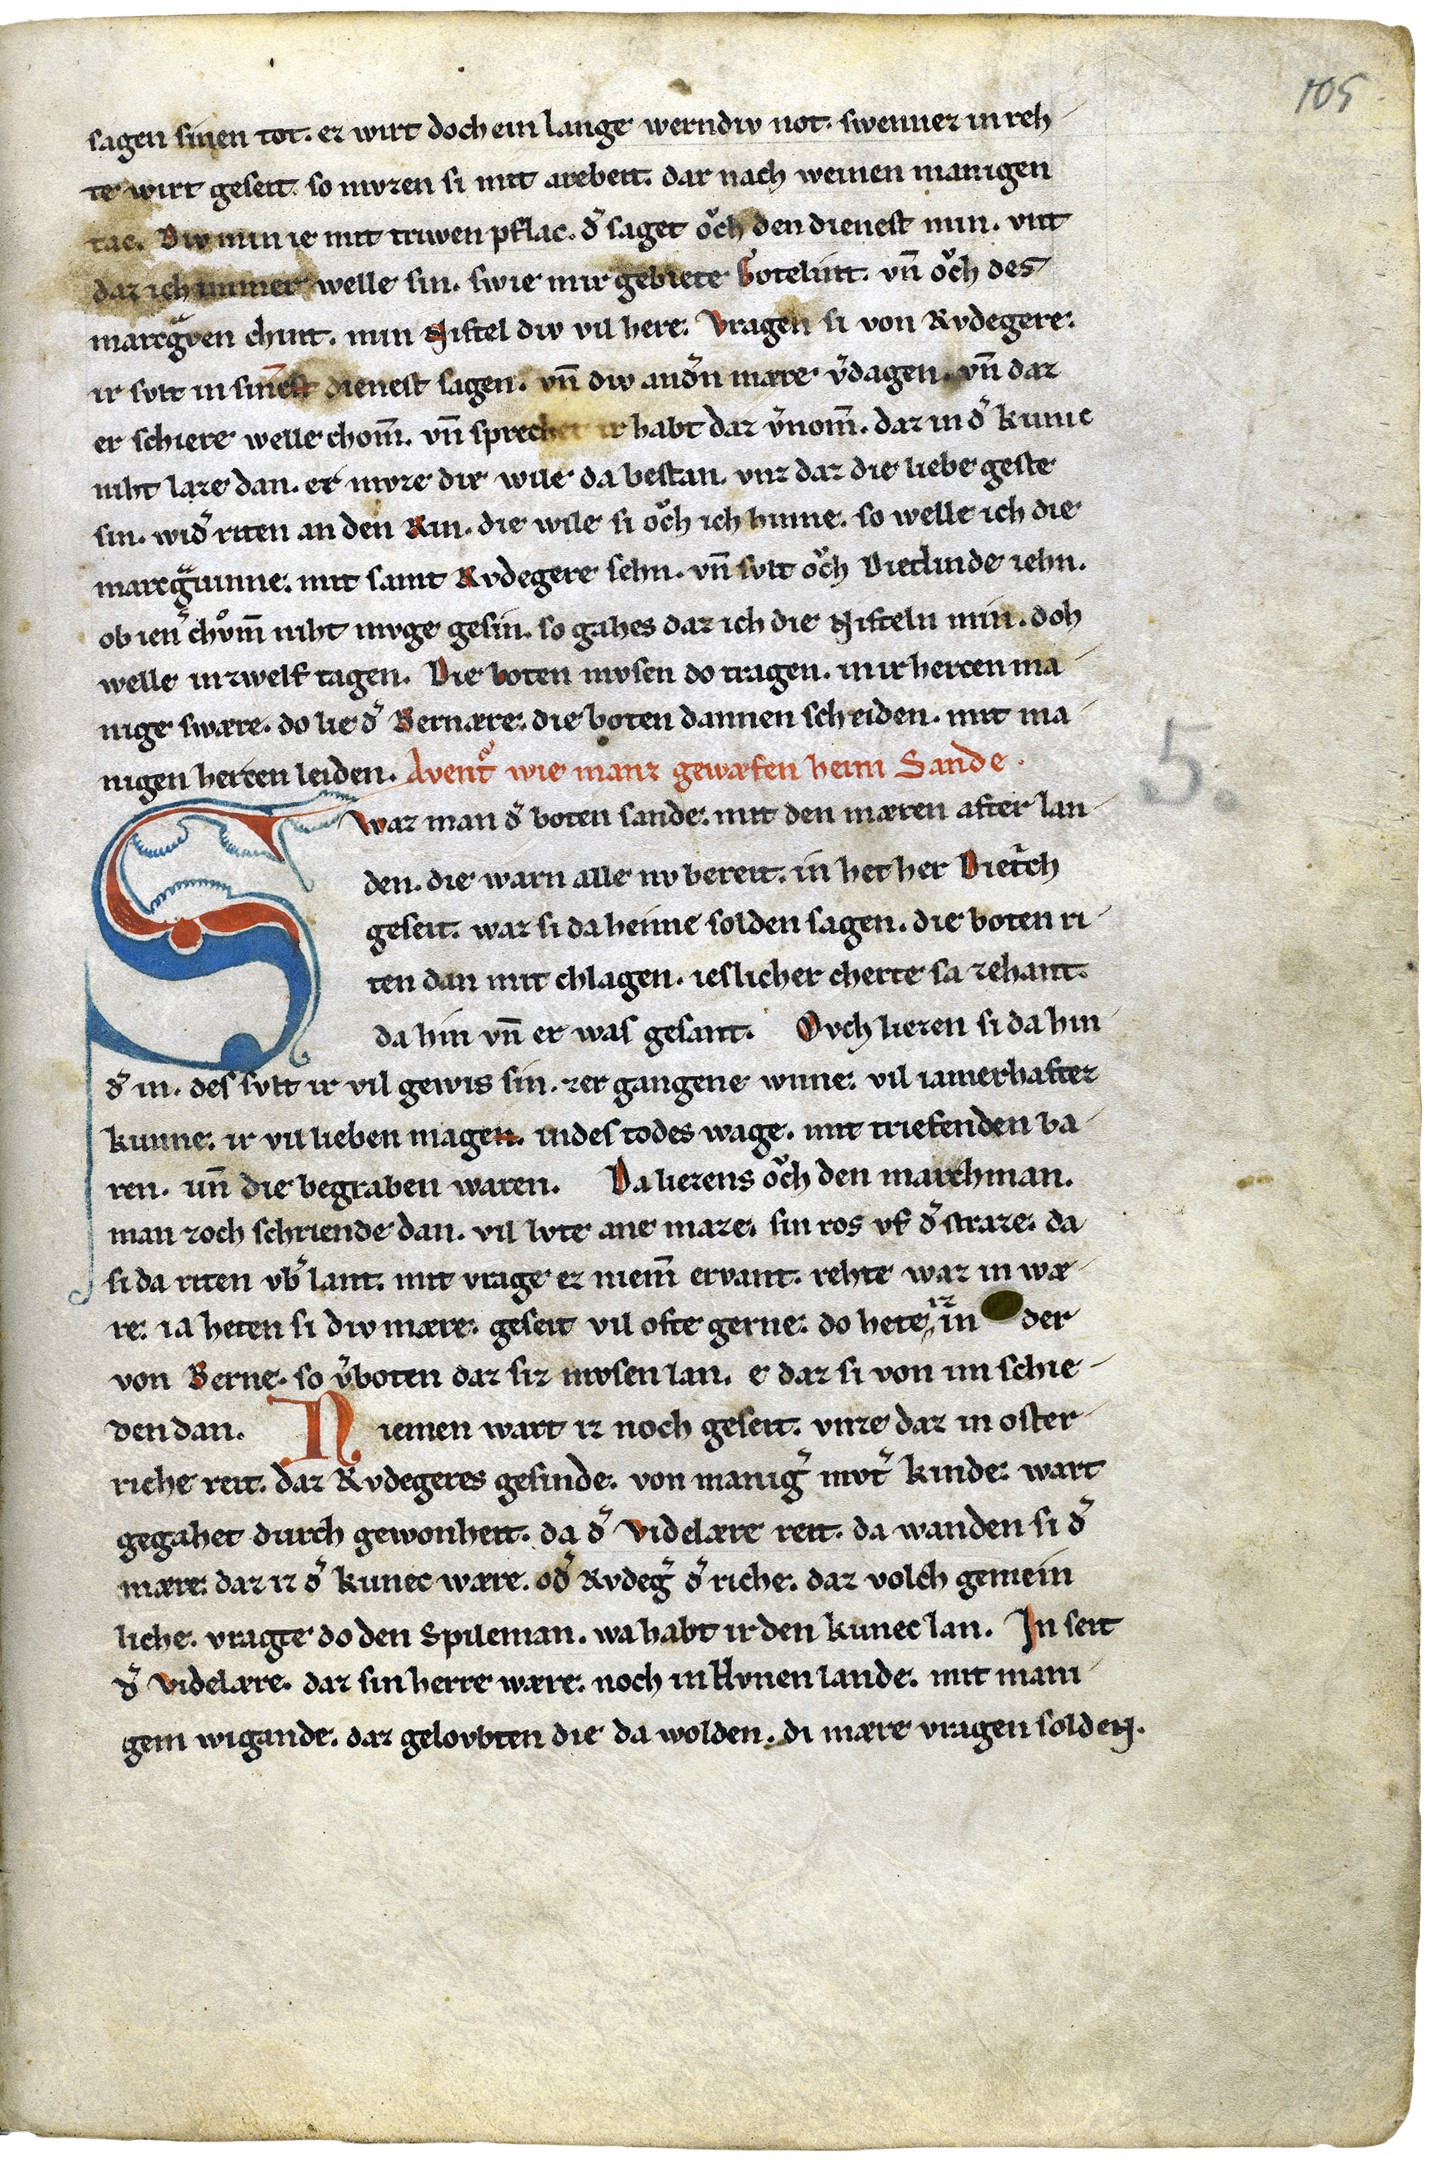 105
sagen sinen tot. ez wirt doch ein lange werndiv not. swennez in reh-
te wirt geseit. so mvzen si mit arebeit. dar nach weinen manigen
tac. Div min ie mit triwen pflac. d̾ saget oͮch den dienest min. vnt
daz ich immer welle sin. swie mir gebiete Gotelint. vn̄ oͮch des
marcgᵃven chint. min Niftel div vil here. Vragen si von Rvdegere.
ir svlt in sinē dienest sagen. vn̄ div and̾n mære v̾dagen. vn̄ daz
er schiere welle chom̄. vn̄ sprechet ir habt daz v̾nom̄. daz in d̾ kunic
niht laze dan. er mvze die wile da bestan. vnz daz die liebe geste
sin. wid̾ riten an den Rin. die wile si oͮch ich hinne. so welle ich die
marcgᵃvinne. mit samt Rvdegere sehn. vn̄ svlt oͮch Dietlinde iehn.
ob ien̾ chom̄ niht mvge gesin. so gahes daz ich die Nifteln min. doh
welle in zwelf tagen. Die boten mvsen do tragen. in ir hercen ma-
nige swære. do lie d̾ Bernære. die boten dannen scheiden. mit ma-
nigen hercen leiden. Avent̾ wie manz gewæfen heim Sande.
Swaz man d̾ boten sande. mit den mæren after lan-
den. die warn alle nv bereit. in het her Diet̾ch
geseit. waz si da heime solden sagen. die boten ri-
ten dan mit chlagen. ieslicher cherte sa zehant.
da hin vn̄ er was gesant. Ovch liezen si da hin-
d̾ in. des svlt ir vil gewis sin. zergangene wnne. vil iamerhaftez
kunne. ir vil lieben magen. in des todes wage. mit triefenden ba-
ren. un̄ die begraben waren. Da liezens oͮch den marchman.
man zoch schriende dan. vil lvte ane maze. sin ros vf d̾ straze. da
si da riten vb̾ lant. mit vrage ez niem̄ ervant. rehte waz in wæ-
re. ia heten si div mære. geseit vil ofte gerne. do hete iz in der
von Berne. so v̾boten daz siz mvsen lan. e daz si von im schie-
den dan. Niemen wart iz noch geseit. vnze daz in oster-
riche reit. daz Rvdegeres gesinde. von manig̾ mvt̾ kinde. wart
gegahet durch gewonheit. da d̾ Videlære reit. da wanden si d̾
mære. daz iz d̾ kunec wære. od̾ Rvdeg̾ d̾ riche. daz volch gemein
liche. vragte do den Spileman. wa habt ir den kunec lan. In seit
d̾ Videlære. daz sin herre wære. noch in Hvnen lande. mit mani-
gem wigande. daz gelovbten die da wolden. di mære vragen solden.
5.